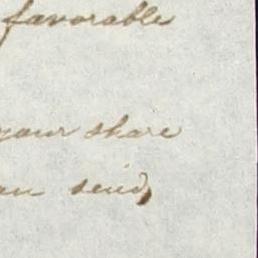 favorable
your share
an send